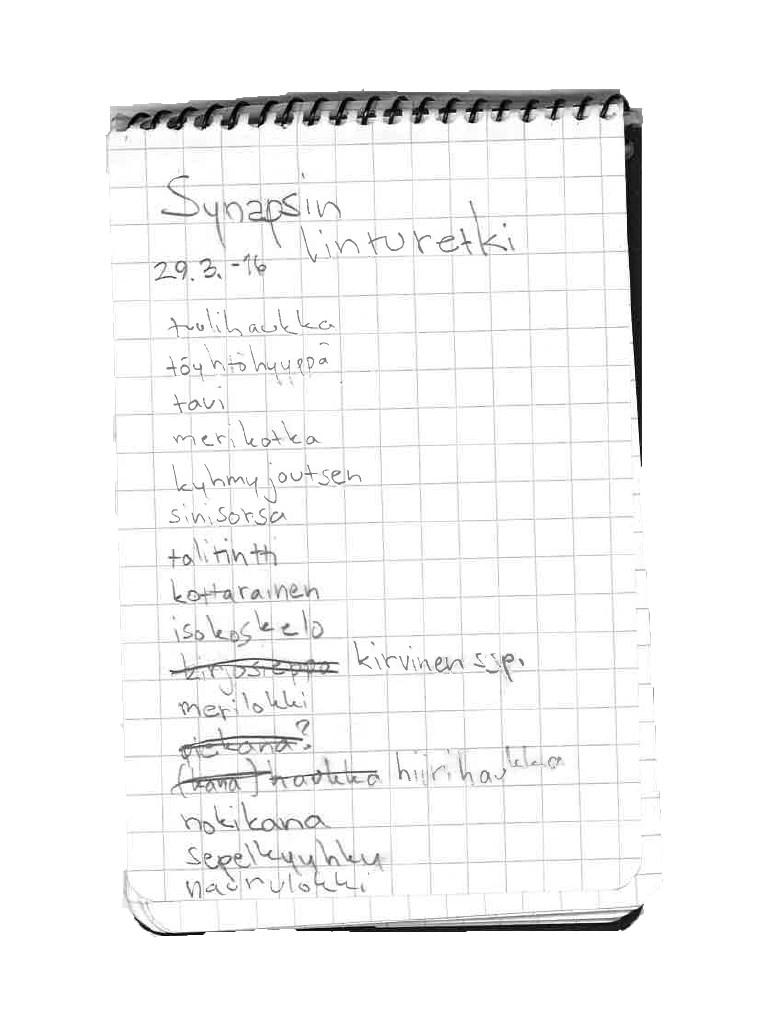 Synapsin
linturetki
29.3.-16
tuulihaukka
töyhtöhyyppä
tavi
merikotka
kyhmyjoutsen
sinisorsa
talitintti
kottarainen
isokoskelo
kirjosieppo kirvinen ssp.
merilokki
piekana?
(kana)haukka hiirihaukka
nokikana
sepelkyyhky
naurulokki